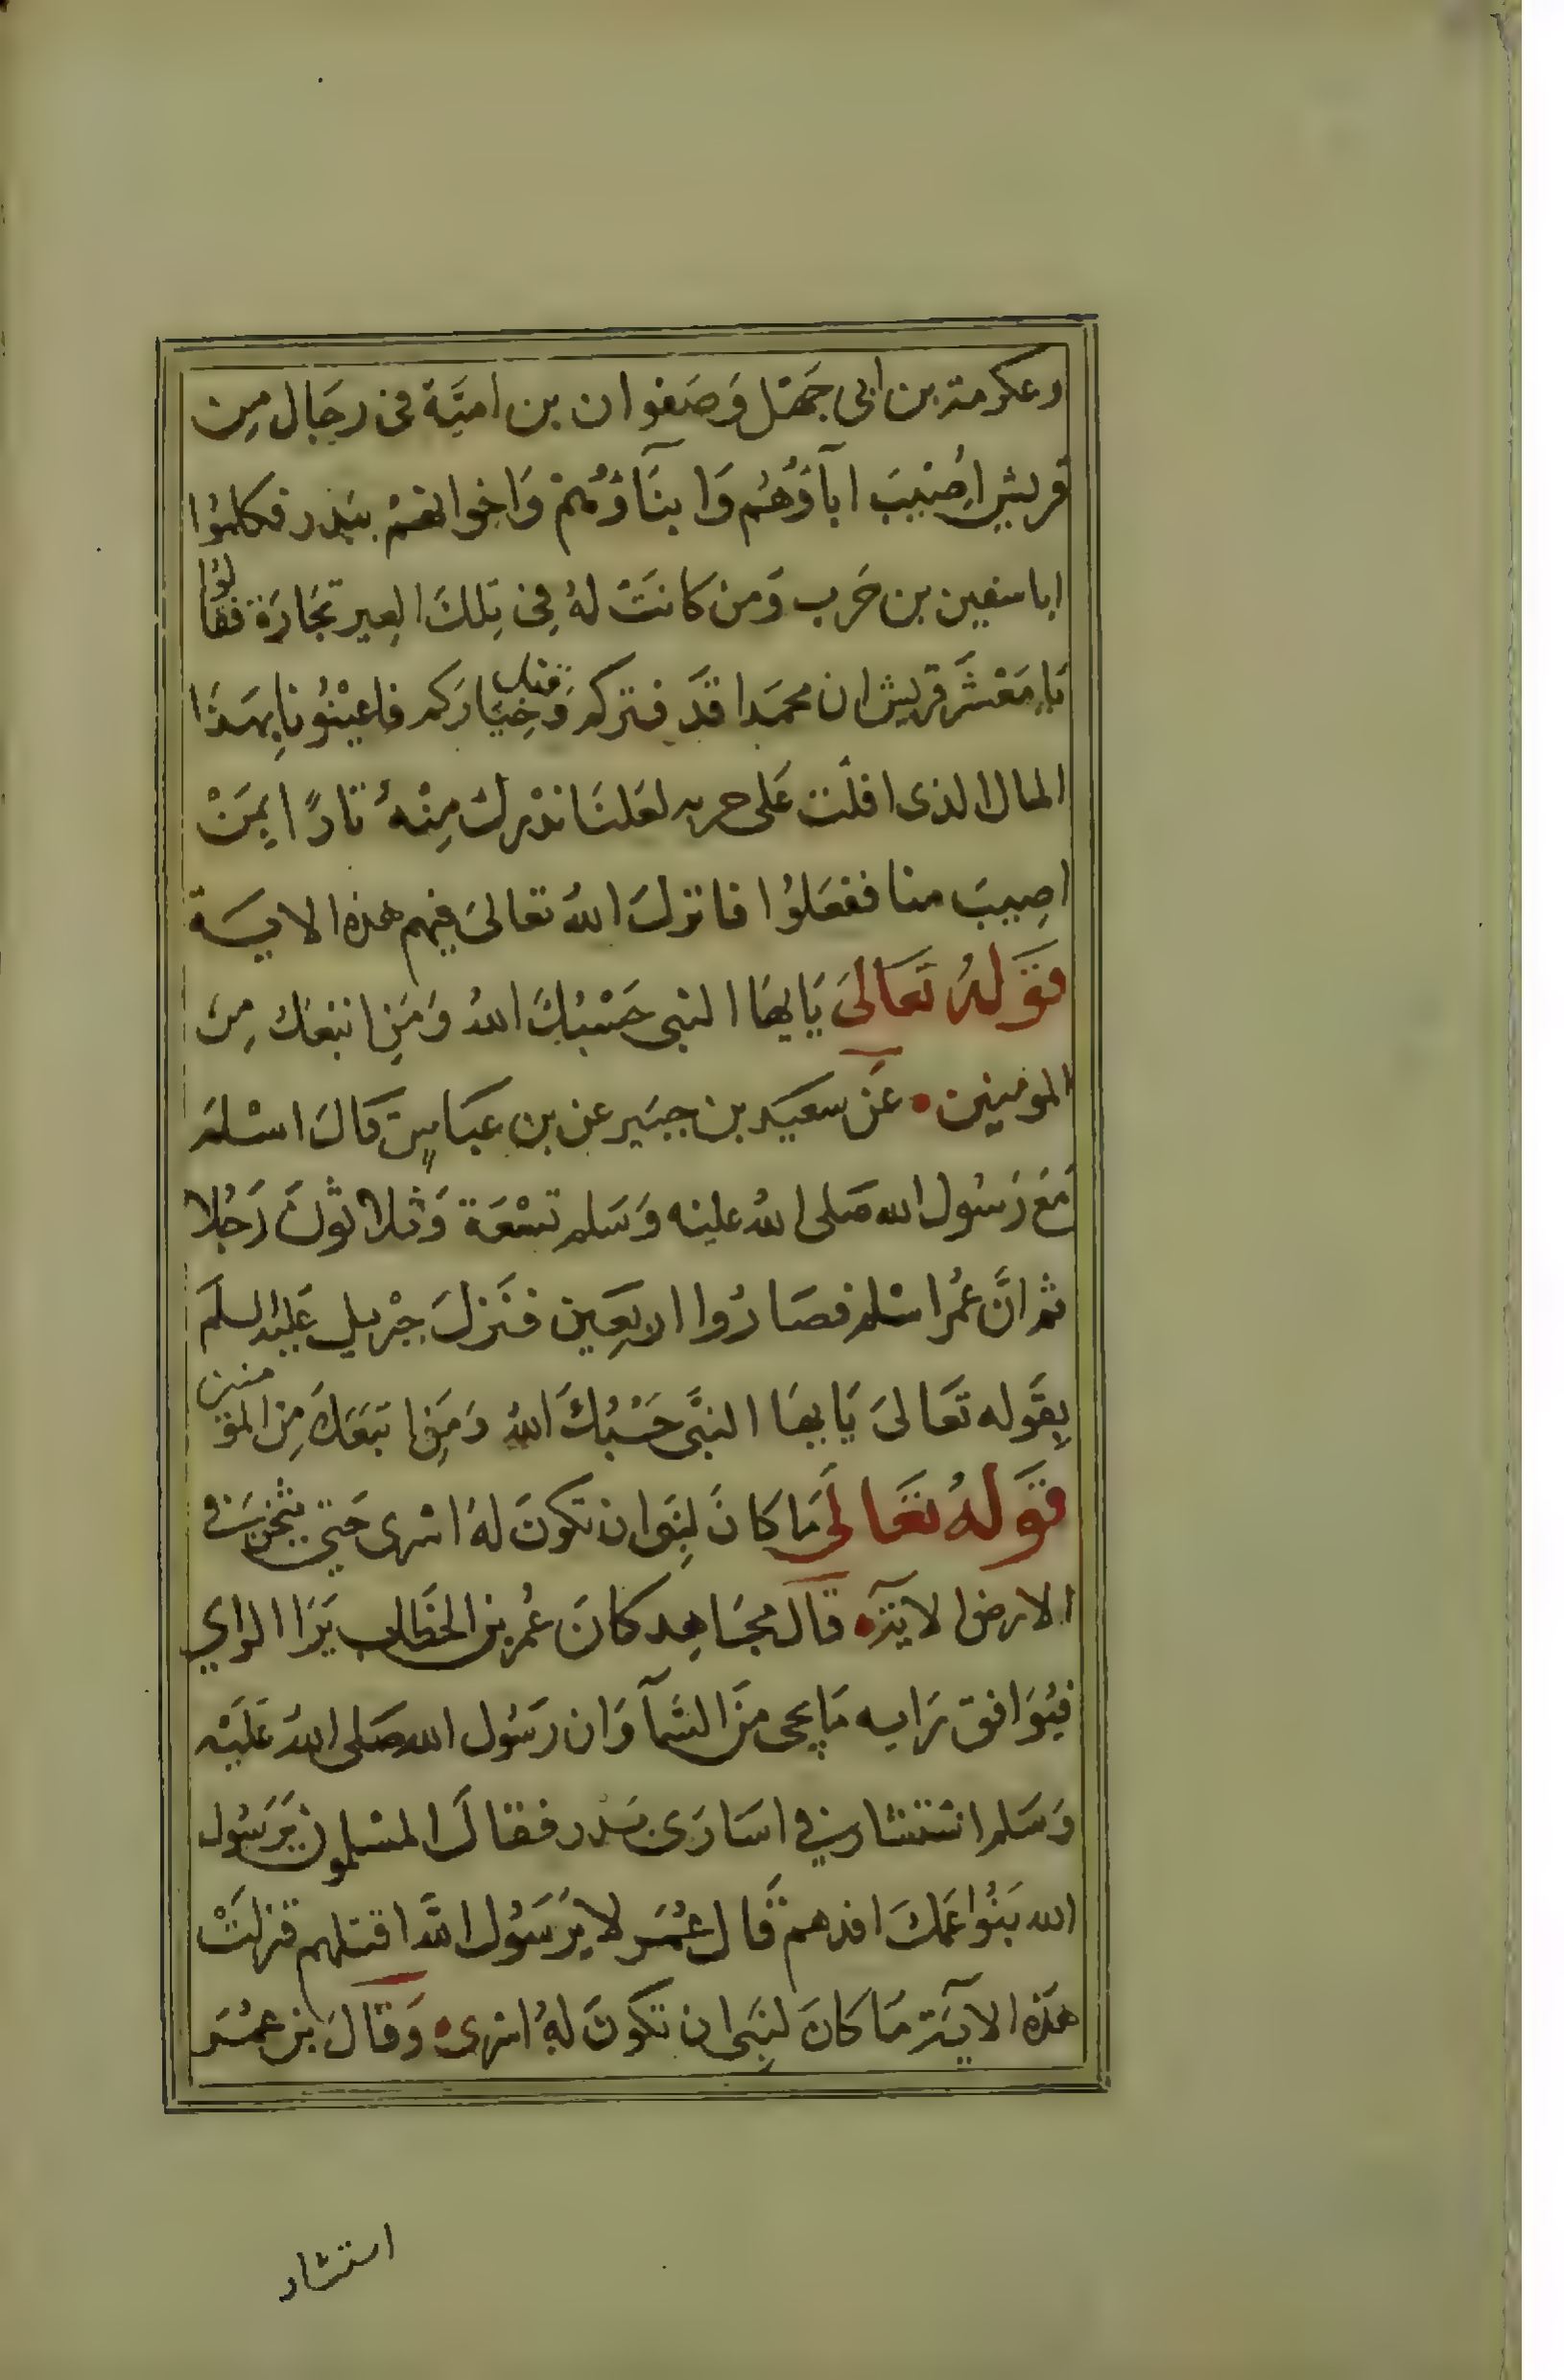 وعكرمة بن ابي جَهْل وَصَفوان بن امَيَّة في رجَال مِن
قريش اُصِيبَ اباَؤُهُم وَابنَاَؤُهمْ وَاخِوانهمْ ببَدر فكلمُوا
ابا سفين بن حَرب وَمن كانَتْ لهُ فِي تِلكَ العِير تجَارَة فقالوُا
يَا مَعْشَر قريش ان محمَدا قَد وَتركم وَقتل خِيَاركم فاعِيْنُونا بِهَذَا
المال الذي افلَت عَلى حربه لعَلنَا ندْرك مِنْهُ ثارًا بِمَنْ
اصِيبَ منا ففعَلوُا فانزلَ اللهُ تعالىَ فيهم هذه الايَة
قوَلهُ تَعَالىَ يَايهَا النبي حَسْبُكَ اللهُ وَمَنِ اتبعَكَ مِنَ
المومِنين • عَن سعيَد بن جبَير عن بن عبَاسٍ قالَ اسْلمَ
مَعَ رَسُول الله صَلى اللهُ عليْه وَسَلم تسْعَة وَثلاثونَ رَجُلا
ثم انَّ عُمَر اسْلم فصَارُوا اربَعِين فنَزلَ جِبْريل عَليْه السلَم
بِقَوله تَعَالىَ يَايهَا النبَّي حَسْبُكَ اللهُ وَمَنِ اتبَعَكَ مِنَ المؤمنين
قوَلهُ تعَالىَ مَا كانَ لِنبَي ان تكونَ لهُ اسْرى حَتي يثخِن في
الارض الايَة • قالَ مجَاهِد كانَ عُمَر بن الخطاب يَرَا الراي
فيُوَافق رَايه مَا يجي منَ السَمآ وَان رَسُول الله صَلى اللهُ عَلَيْه
وَسَلم اسْتشار في اسَارَى بَدر فقالَ المسْلمون يَرَسُول
الله بَنُوا عَمكَ افدهم قَال عُمَر لا يَرَسُول الله اقتلهم فنزلَتْ
هَذه الايَة مَا كانَ لنبَي ان تكونَ لهُ اسْرى • وَقالَ بن عمُر
استشار